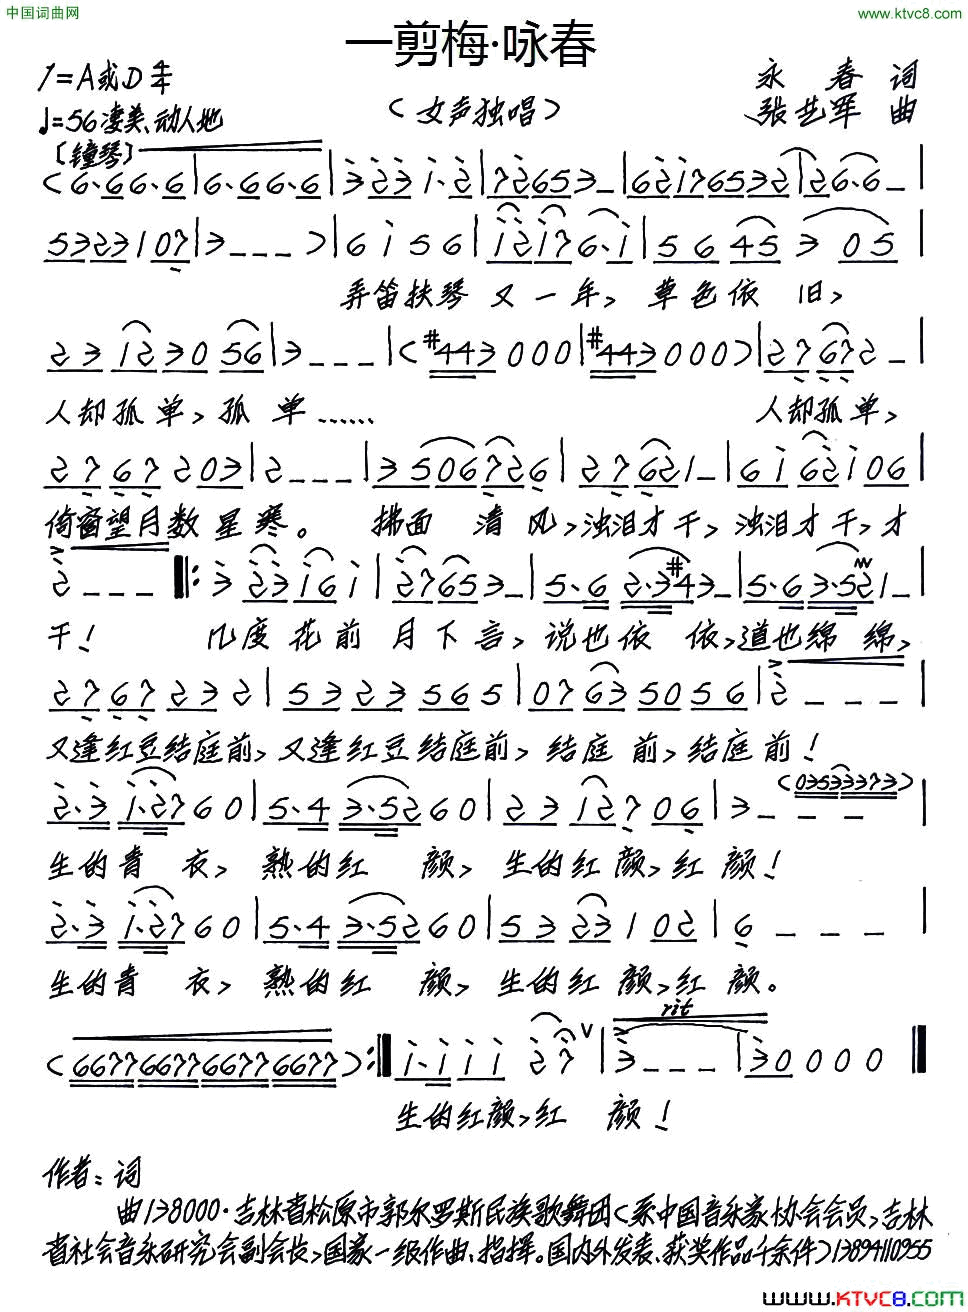 中国词曲网
www.ktvc8.com
一剪梅·咏春
1=A或D 4/4
永春 词
(女声独唱)
张艺军 曲
♩=56 凄美、动人地
〔钟琴〕
(6·66·6|6·66·6|3233 1·2|72653_|62176532|26·6_|
5323107|3___)|6 1 5 6|12176·1|5 6 45 3 05|
弄笛扶琴又一年，草色依旧，
23 12 30 56|3___|(#443000|#443000)|27672_|
人却孤单，孤单…… 人却孤单，
2767203|2___|3506726|27621_|6 1 62106|
倚窗望月数星寒。 拂面 清风，浊泪才干，浊泪才干，才
2___ ‖: 3 23161|27653_|5·6 2·3#43_|5·6 3·521_|
干！ 几度花前月下言，说也依依，道也绵绵，
2767232|5323565|07635056|2___|
又逢红豆结庭前，又逢红豆结庭前，结庭前，结庭前！
2·3 1·2760|5·4 3·5260|23 127 06|3___ (03533373)|
生的青衣，熟的红颜，生的红颜，红颜！
2·3 1·2760|5·4 3·5260|53 231 02|6___|
生的青衣，熟的红颜，生的红颜，红颜。
rit
(6677667766776677):‖ 1·111 27 V|3___|30000‖
生的红颜，红颜！
作者：词
曲138000·吉林省松原市郭尔罗斯民族歌舞团(系中国音乐家协会会员，吉林
省社会音乐研究会副会长，国家一级作曲、指挥。国内外发表、获奖作品千余件)13894110955
www.KTVC8.com